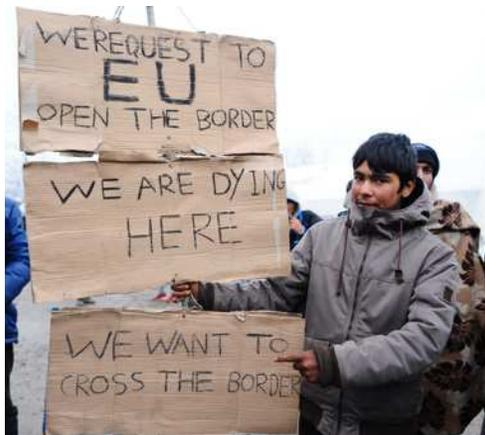 WE REQUEST TO
EU
OPEN THE BORDER
WE ARE DYING
HERE
WE WANT TO
CROSS THE BORDER